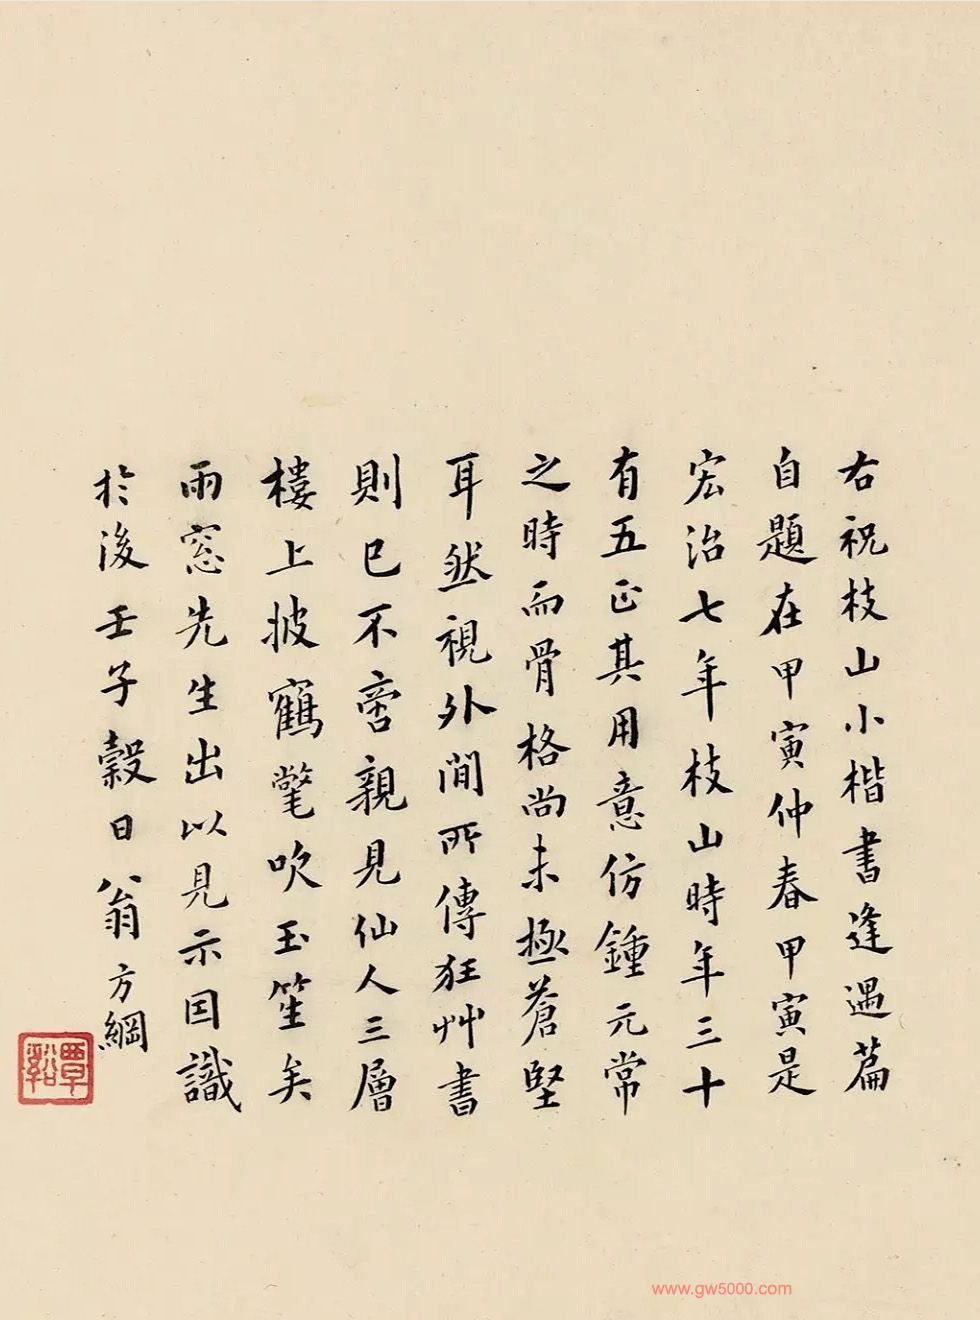 右祝枝山小楷書逢遇篇
自題在甲寅仲春甲寅是
宏治七年枝山時年三十
有五正其用意仿鍾元常
之時而骨格尚未極蒼堅
耳然視外間所傳狂艸書
則已不啻親見仙人三層
樓上披鶴氅吹玉笙矣
雨窓先生出以見示因識
於後壬子穀日翁方綱
覃谿
www.gw5000.com